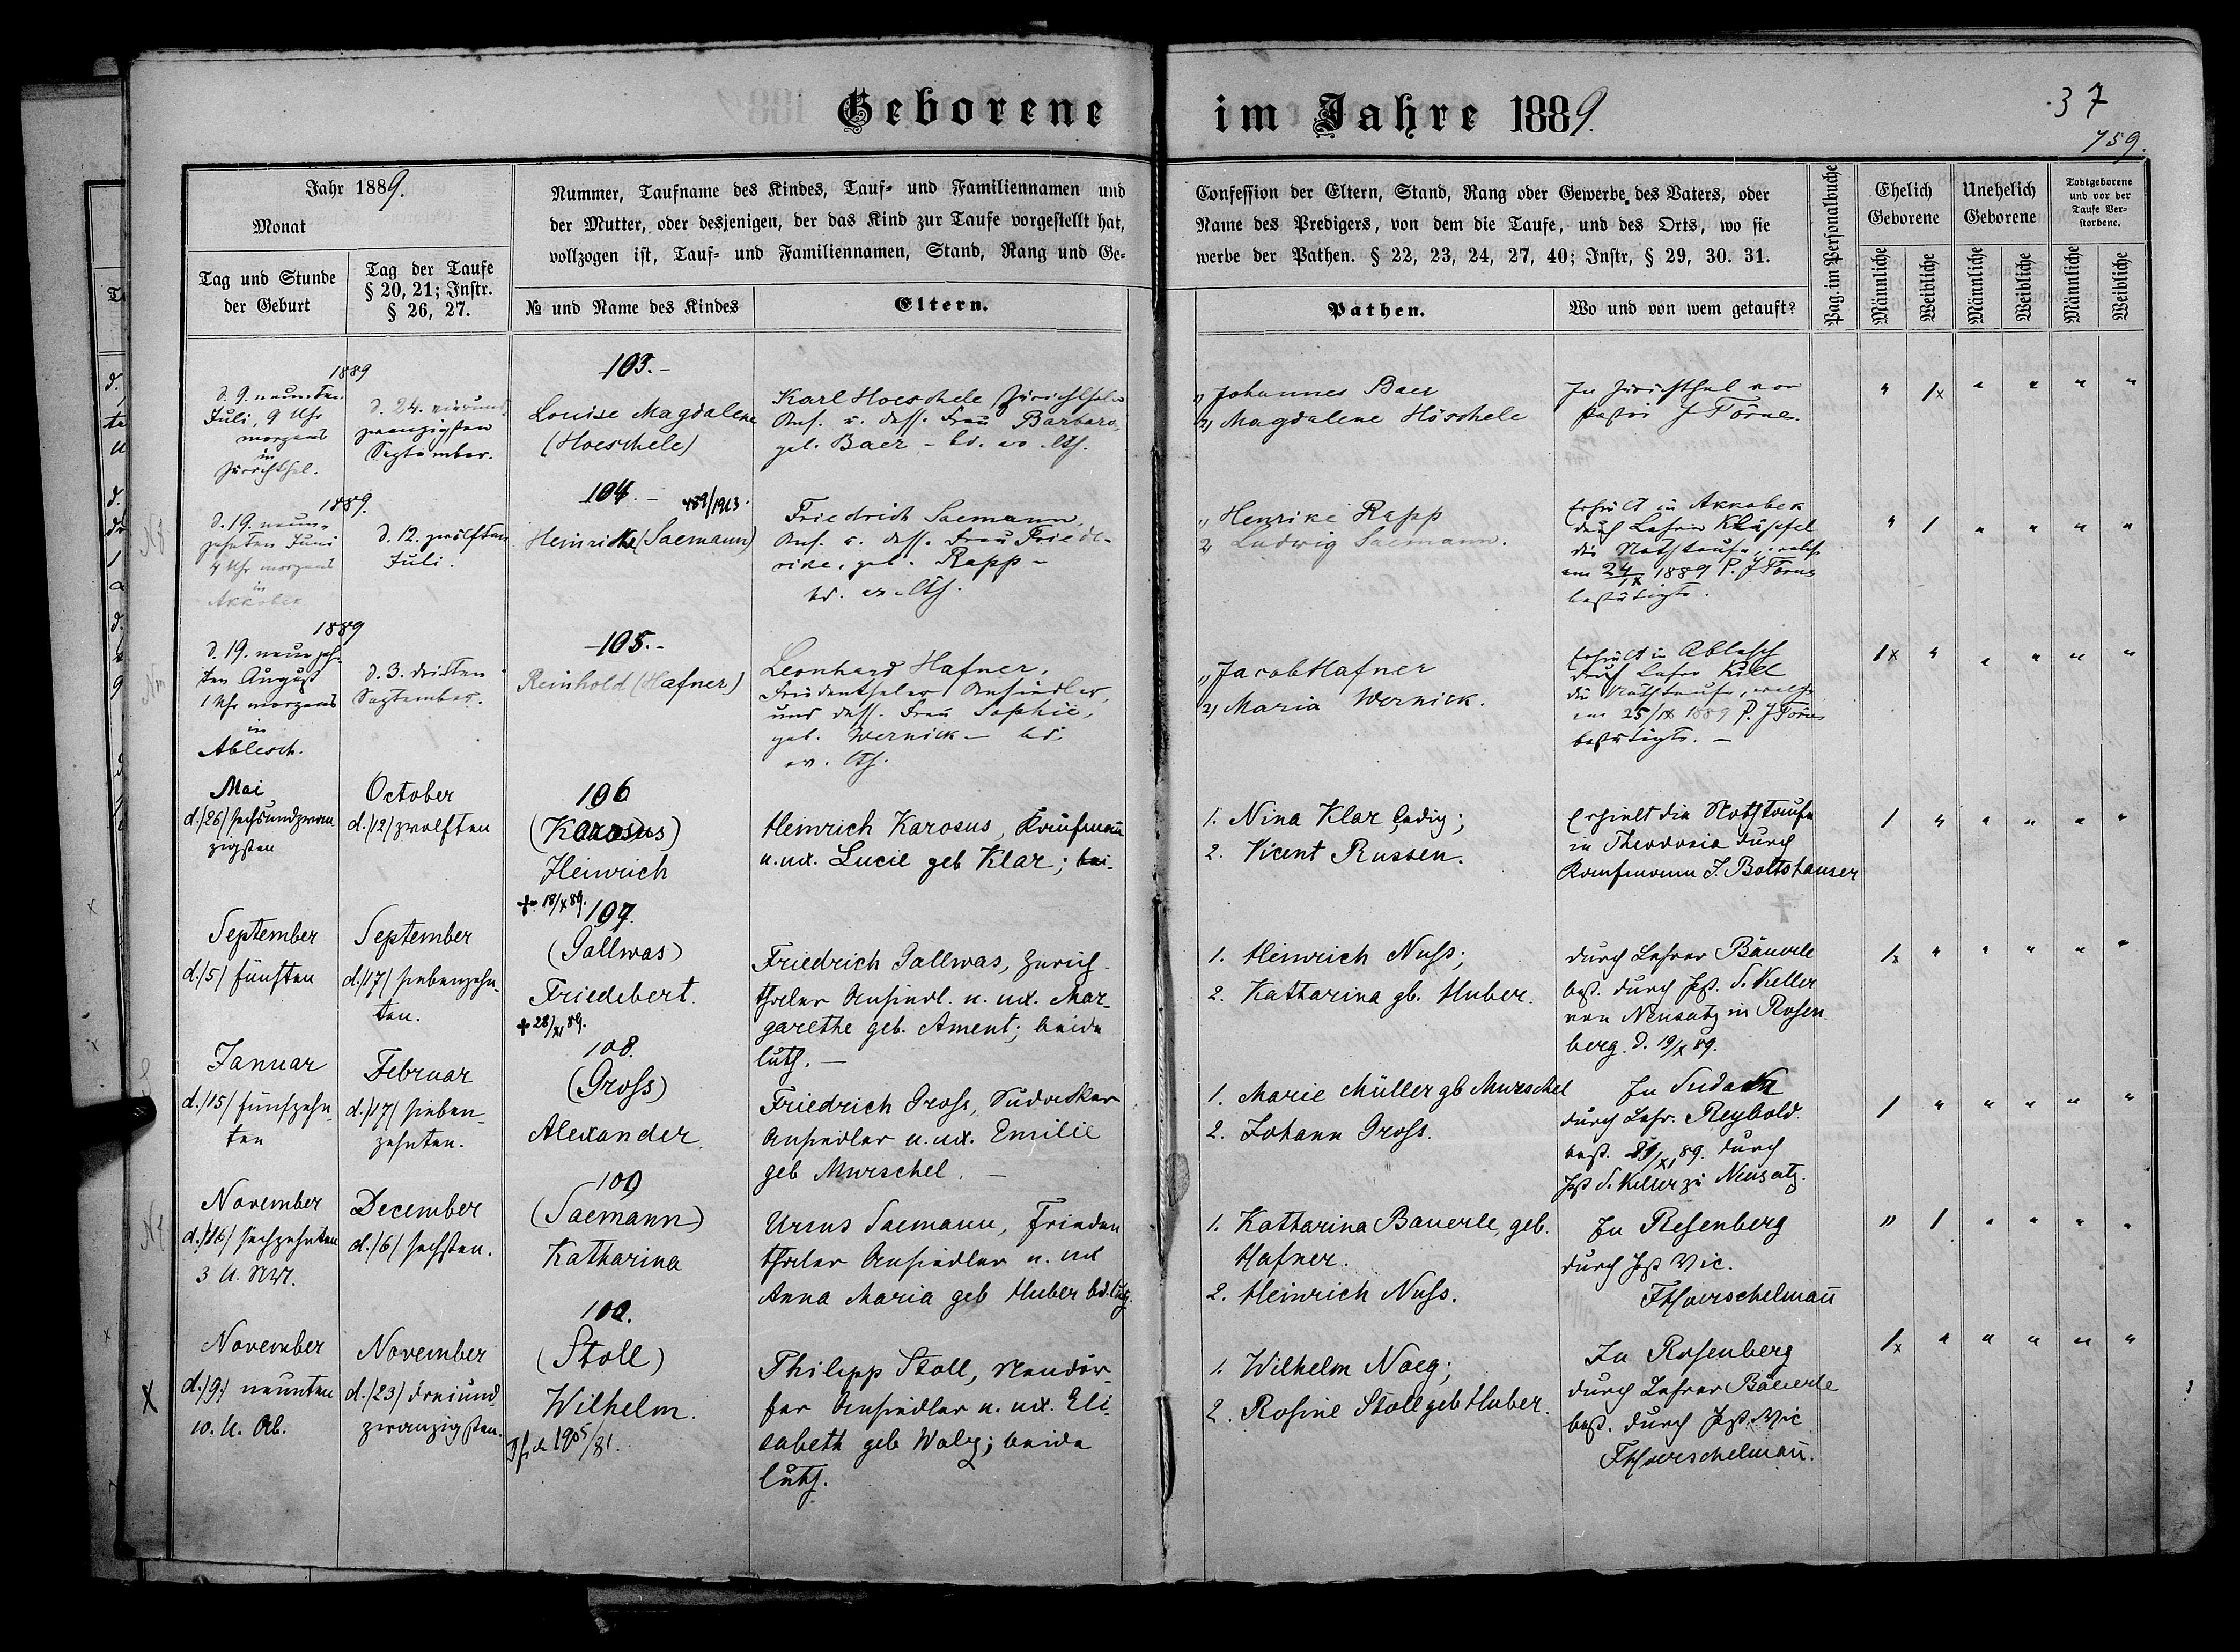 Geborene im Jahre 1889.
37
759.
Jahr 1889.
Monat
Tag und Stunde
der Geburt
Tag der Taufe
§ 20, 21; Instr.
§ 26, 27.
Nummer, Taufname des Kindes, Tauf- und Familiennamen und
der Mutter, oder desjenigen, der das Kind zur Taufe vorgestellt hat,
vollzogen ist, Tauf- und Familiennamen, Stand, Rang und Ge-
№ und Name des Kindes
Eltern.
Confession der Eltern, Stand, Rang oder Gewerbe des Vaters, oder
Name des Predigers, von dem die Taufe, und des Orts, wo sie
werbe der Pathen. § 22, 23, 24, 27, 40; Instr, § 29, 30. 31.
Pathen.
Wo und von wem getauft?
Pag. im Personalbuche
Ehelich
Geborene
Unehelich
Geborene
Todtgeborene
und vor der
Taufe Ver-
storbene.
Männliche
Weibliche
Männliche
Weibliche
Männliche
Weibliche
1889
d. 9. neunten
Juli, 9 Uhr
morgens
in
Zürichthal.
d. 24. vierund-
zwanzigsten
September.
103.-
Louise Magdalene
(Hoeschele)
Karl Hoeschele Zürichthaler
Ans. u. dess. Frau Barbara,
geb. Baer - bd. ev. lth.
1, Johannes Baer
2, Magdalene Höschele
In Zürichthal von
Pastor J Törne.
" 1x " " " "
1889.
d. 19. neun-
zehnten Juni
4 Uhr morgens
in
Akkobek
d. 12. zwölften
Juli.
104.- 489/1913.
Heinrike (Saemann)
Friedrich Saemann,
Ans. u. dess. Frau Friede-
rike, geb. Rapp -
bd. ev. lth.
1, Henrike Rapp
2, Ludwig Saemann.
Erhielt in Akkobek
durch Lehrer Kläpfel
die Nothtaufe, welche
am 24/IX 1889 P. J Törne
bestätigte.
" 1 " " " "
1889
d. 19. neunzeh-
ten August
1 Uhr morgens
in
Ablesch.
d. 3. dritten
September.
-105.-
Reinhold (Hafner)
Leonhard Hafner,
Friedenthaler Ansiedler,
und dess. Frau Sophie,
geb. Wernick - bd.
ev. lth.
1, Jacob Hafner
2, Maria Wernick.
Erhielt in Ablesch
durch Lehrer Kill
die Nothtaufe, welche
am 25/IX 1889 P. J Törne
bestätigte. -
1x " " " " "
Mai
d./26/ sechsundzwan
zigsten
October
d./12/ zwölften
106
(Karosus)
Heinrich
+ 18/X 89.
Heinrich Karosus, Kaufmann
u. ux. Lucie geb Klar; bei-
1. Nina Klar ledig;
2. Vicent Russen.
Erhielt die Nothtaufe
in Theodosia durch
Kaufmann J. Boltshauser
1 " " " " "
September
d./5/ fünften
September
d./17/ siebenzehn-
ten.
107.
(Gallwas)
Friedebert.
+ 28/XI 89.
Friedrich Gallwas, Zürich-
thaler Ansiedl. u. ux. Mar-
garethe geb. Ament; beide
luth. -
1. Heinrich Nuss;
2. Katharina gb. Huber.
durch Lehrer Bäuerle
best. durch Pst. S. Keller
von Neusatz in Rosen
berg. d. 19/X 89.
1x " " " " "
Januar
d./15/ fünfzehn-
ten
Februar
d./17/ sieben-
zehnten.
108.
(Gross)
Alexander.
Friedrich Gross, Sudacker
Ansiedler u. ux. Emilie
geb Murschel. -
1. Marie Müller gb Murschel
2. Johann Gross.
In Sudack
durch Lehr. Reybold.
best. 89. durch
Pst S. Keller zu Neusatz.
1 " " " " "
November
d./16/ sechzehnten
3 U. NM.
December
d./6/ sechsten.
109
(Saemann)
Katharina
Ursus Saemann, Frieden
thaler Ansiedler u. ux
Anna Maria geb Huber bd. luth.
1. Katharina Bauerle, geb.
Hafner.
2. Heinrich Nuss.
In Rosenberg
durch Pst Vic.
FHoerschelmann
" 1 " " " "
X
November
d./9/ neunten
10. U. Ab.
November
d./23/ dreiund
zwanzigsten.
(Stoll)
Wilhelm.
1905/81.
Philipp Stoll, Neudör-
fer Ansiedler u. ux. Eli-
sabeth geb Walz; beide
luth.
1. Wilhelm Naeg;
2. Rosine Stoll geb Huber.
In Rosenberg
durch Lehrer Bäuerle
best. durch Pst. Vic
FHoerschelmann.
1x " " " " "